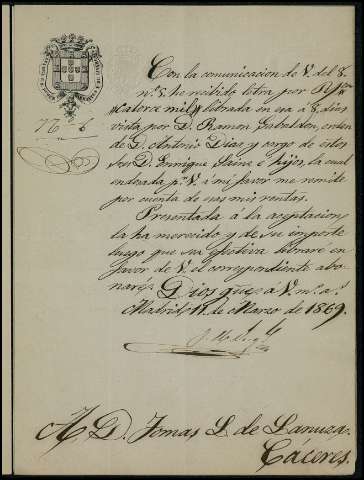 Nº 6
Con la comunicacion de V. del 8.
n.º 8. he recibido letra por R.s v.on
"Catorce mil" librada en esa á 8 dias
vista por D. Ramon Gabaldon, orden
de D. Antonio Dias y cargo de estos
Sres D. Enrique Sainz é hijos, la cual
endosada p.r V. á mi favor me remite
por cuenta de sus mis rentas.
Presentada á la aceptacion
la ha merecido y de su importe
luego que sea efectiva libraré en
favor de V. el correspondiente abo-
naré.
Dios gue. á V. m.s a.s
Madrid 11 de Marzo de 1869.
A D. Tomas L. de Lanuza.
Cáceres.